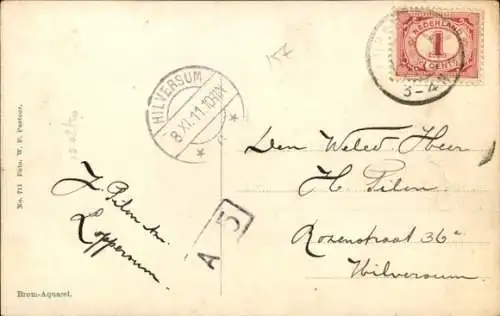 No. 711 Foto. W. F. Pastoor.
HILVERSUM
8.XI.11.10-11V
157
NEDERLAND
1
CENT
3-4
Den Weled. Heer
H. Pilon
Rozenstraat 36a
Hilversum
J. Pilon
Loppersum.
A 5
Brom-Aquarel.